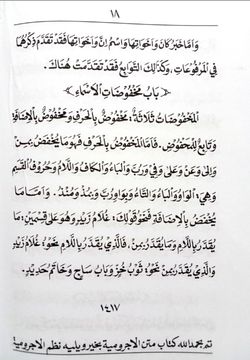 ١٨
وَأَمَّا خَبَرُ كَانَ وَأَخَوَاتِهَا وَاسْمُ إِنَّ وَأَخَوَاتِهَا فَقَدْ تَقَدَّمَ ذِكْرُهُمَا
فِي الْمَرْفُوعَاتِ، وَكَذَلِكَ التَّوَابِعُ فَقَدْ تَقَدَّمَتْ هُنَاكَ.
﴿بَابُ مَخْفُوضَاتِ الْأَسْمَاءِ﴾
الْمَخْفُوضَاتُ ثَلَاثَةٌ: مَخْفُوضٌ بِالْحَرْفِ وَمَخْفُوضٌ بِالْإِضَافَةِ
وَتَابِعٌ لِلْمَخْفُوضِ. فَأَمَّا الْمَخْفُوضُ بِالْحَرْفِ فَهُوَ مَا يُخْفَضُ بِمِنْ
وَإِلَى وَعَنْ وَعَلَى وَفِي وَرُبَّ وَالْبَاءِ وَالْكَافِ وَاللَّامِ وَحُرُوفِ الْقَسَمِ
وَهِيَ: الْوَاوُ وَالْبَاءُ وَالتَّاءُ وَبِوَاوِ رُبَّ وَبِمُذْ وَمُنْذُ. وَأَمَّا مَا
يُخْفَضُ بِالْإِضَافَةِ فَنَحْوُ قَوْلِكَ: غُلَامُ زَيْدٍ وَهُوَ عَلَى قِسْمَيْنِ: مَا
يُقَدَّرُ بِاللَّامِ وَمَا يُقَدَّرُ بِمِنْ. فَالَّذِي يُقَدَّرُ بِاللَّامِ نَحْوُ غُلَامُ زَيْدٍ
وَالَّذِي يُقَدَّرُ بِمِنْ نَحْوُ: ثَوْبُ خَزٍّ وَبَابُ سَاجٍ وَخَاتَمُ حَدِيدٍ.
١٤١٧
تم بحمد الله كتاب متن الاجرومية بخير ويليه نظم الاجرومية